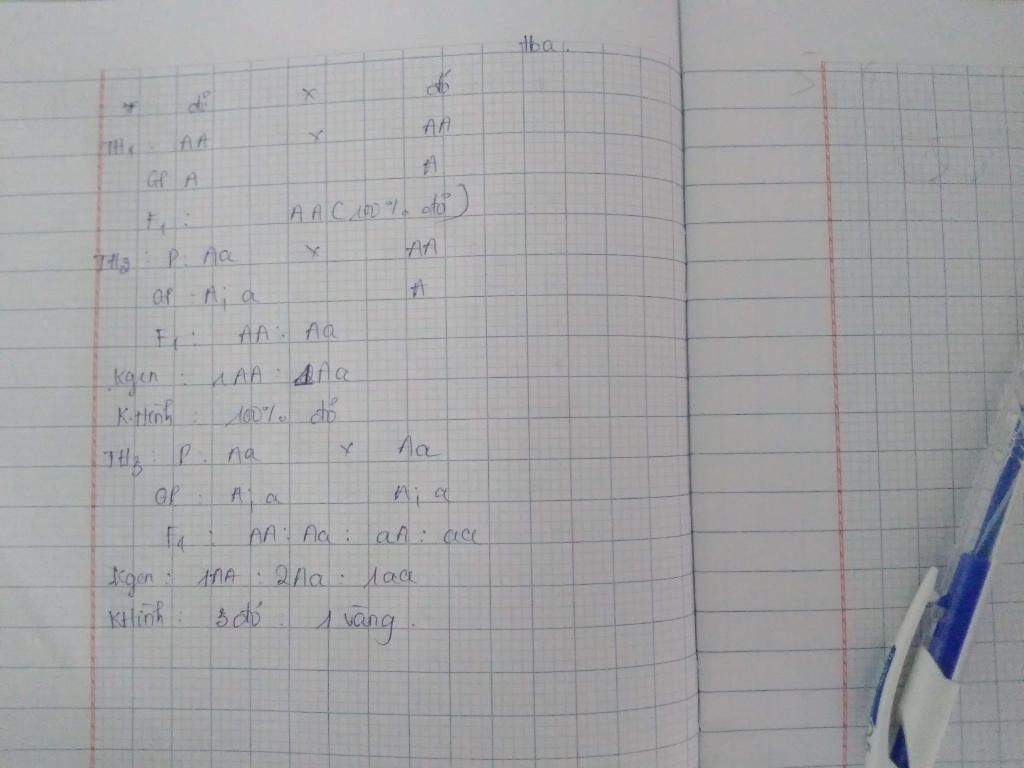 * đỏ x đỏ
TH1: AA x AA
GP A A
F1: AA (100% đỏ)
TH2: P: Aa x AA
GP: A; a A
F1: AA: Aa
Kgen: 1AA: 1Aa
K.Hình: 100% đỏ
TH3: P: Aa x Aa
GP: A; a A; a
F1: AA: Aa: aA: aa
Kgen: 1AA: 2Aa: 1aa
KHình: 3 đỏ: 1 vàng.